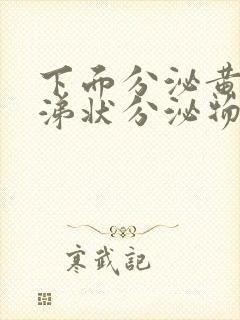 下而分泌黄
涕状分泌物
寒武記